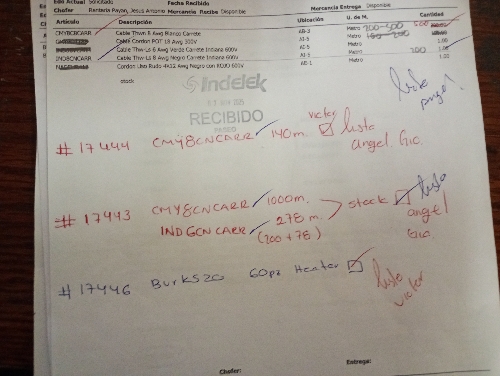 Edo Actual Solicitado Fecha Recibido
Chofer Renteria Payan, Jesus Antonio Mercancia Recibe Disponible Mercancia Entrega Disponible
Artículo Descripción Ubicación U. de M. Cantidad
CMY8CBCARR Cable Thwn 8 Awg Blanco Carrete AB-3 Metro 200-300 500
Cable Cordon POT 18 Awg 300V AI-3 Metro
Cable Thw-Ls 6 Awg Verde Carrete Indiana 600v AI-5 Metro 1.00
IND8GNCARR Cable Thw-Ls 8 Awg Negro Carrete Indiana 600v AI-5 Metro 100 1.00
Cordon Uso Rudo 4X12 Awg Negro con ECOD 600V AE-1 Metro 1.00
stock
Indelek
2025
RECIBIDO
Listo
angel
victor
#17444 CMY8CNCARR 140m. listo
angel. Gio.
#17443 CMY8CNCARR 1000m. stock listo
IND6CNCARR 278 m. angel
(200+78) Gio
#17446 BurK520 60pz Heater listo
victor
Chofer: Entrega: